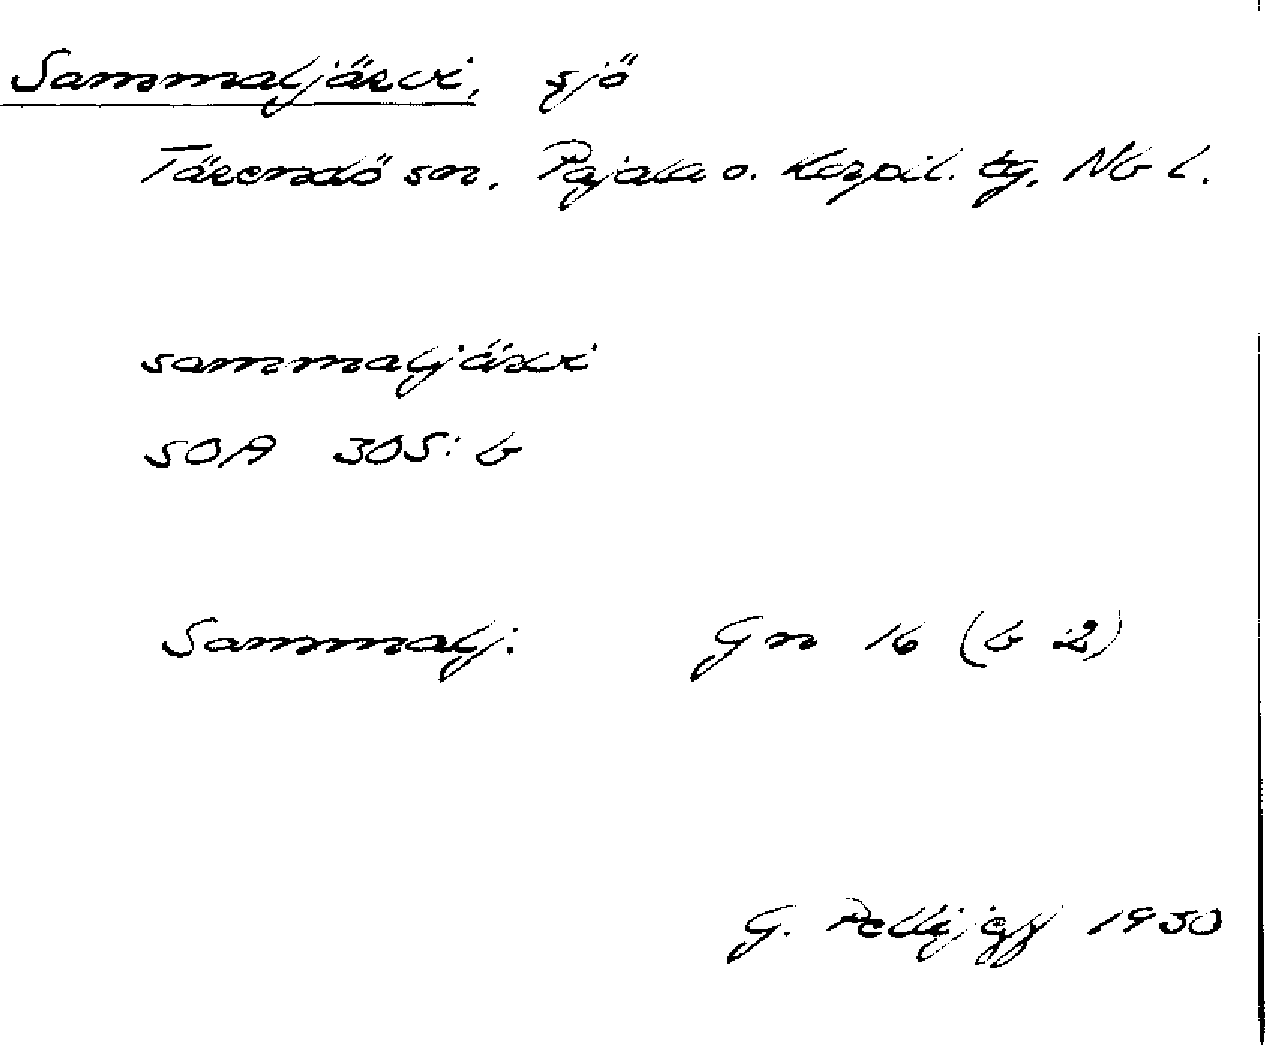 Sammaljärvi, sjö
Tärendö sn, Pajala o. Korpil. tg, Nb l.
sammaljärvi
SOA 305: b
Sammalj: Gn 16 (b 2)
G. Pellijeff 1950